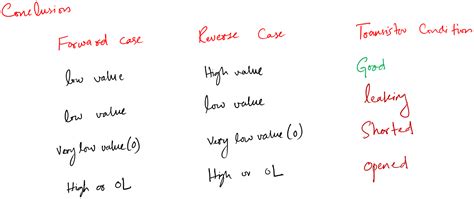 Conclusion
Forward case Reverse Case Transistor Condition
low value High value Good
low value low value leaking
very low value (0) very low value (0) Shorted
High or OL High or OL opened